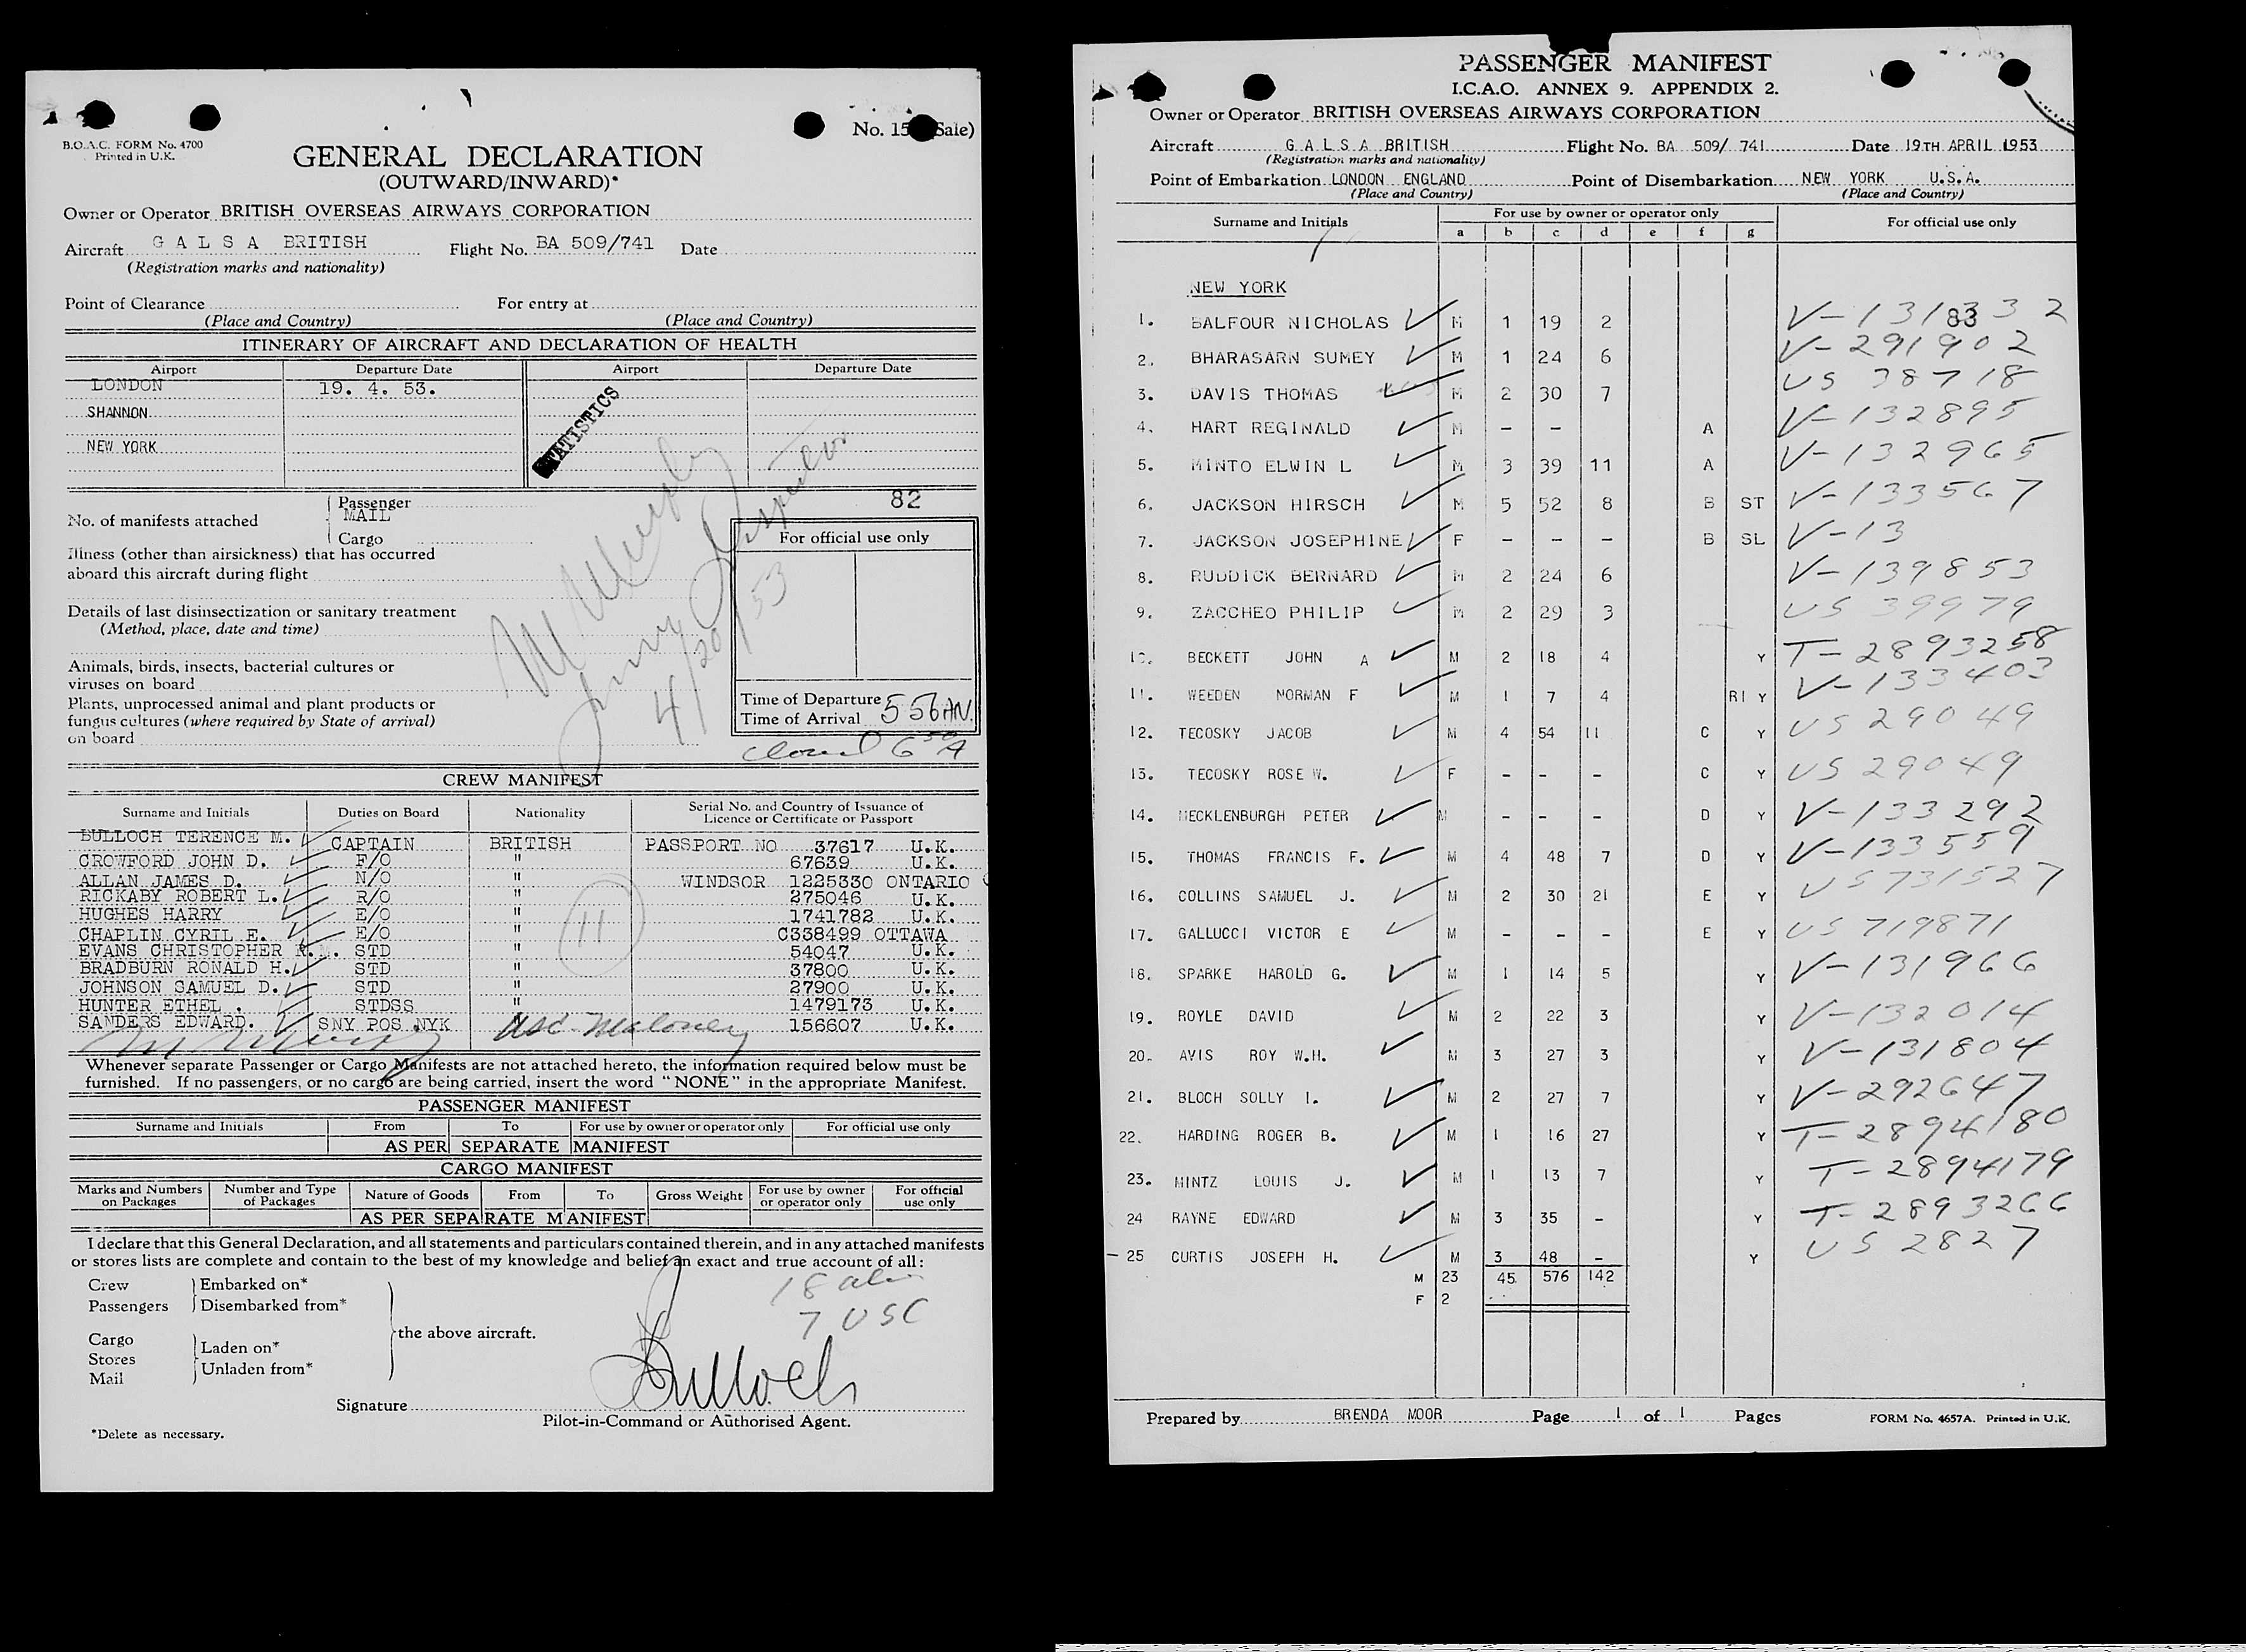 B.O.A.C. FORM No. 4700
Printed in U.K.
No. 15 Sale)
GENERAL DECLARATION
(OUTWARD/INWARD)*
Owner or Operator BRITISH OVERSEAS AIRWAYS CORPORATION
Aircraft G A L S A BRITISH Flight No. BA 509/741 Date
(Registration marks and nationality)
Point of Clearance For entry at
(Place and Country) (Place and Country)
ITINERARY OF AIRCRAFT AND DECLARATION OF HEALTH
Airport Departure Date Airport Departure Date
LONDON 19. 4. 53.
SHANNON
NEW YORK
TATISTICS
Passenger 82
No. of manifests attached MAIL
Cargo
Illness (other than airsickness) that has occurred
aboard this aircraft during flight
For official use only
Details of last disinsectization or sanitary treatment
(Method, place, date and time)
Animals, birds, insects, bacterial cultures or
viruses on board
Plants, unprocessed animal and plant products or
fungus cultures (where required by State of arrival)
on board
4/20/53
Time of Departure
Time of Arrival 5 56 AM.
CREW MANIFEST
Surname and Initials Duties on Board Nationality Serial No. and Country of Issuance of Licence or Certificate or Passport
BULLOCH TERENCE M. CAPTAIN BRITISH PASSPORT NO 37617 U.K.
CROWFORD JOHN D. F/O " 67639 U.K.
ALLAN JAMES D. N/O " WINDSOR 1225330 ONTARIO
RICKABY ROBERT L. R/O " 275046 U.K.
HUGHES HARRY E/O " 1741782 U.K.
CHAPLIN CYRIL E. E/O " C338499 OTTAWA
EVANS CHRISTOPHER R. STD " 54047 U.K.
BRADBURN RONALD H. STD " 37800 U.K.
JOHNSON SAMUEL D. STD " 27900 U.K.
HUNTER ETHEL . STDSS " 1479173 U.K.
SANDERS EDWARD. SNY POS NYK 156607 U.K.
11
Whenever separate Passenger or Cargo Manifests are not attached hereto, the information required below must be
furnished. If no passengers, or no cargo are being carried, insert the word "NONE" in the appropriate Manifest.
PASSENGER MANIFEST
Surname and Initials From To For use by owner or operator only For official use only
AS PER SEPARATE MANIFEST
CARGO MANIFEST
Marks and Numbers on Packages Number and Type of Packages Nature of Goods From To Gross Weight For use by owner or operator only For official use only
AS PER SEPARATE MANIFEST
I declare that this General Declaration, and all statements and particulars contained therein, and in any attached manifests
or stores lists are complete and contain to the best of my knowledge and belief an exact and true account of all:
Crew Embarked on*
Passengers Disembarked from*
the above aircraft.
Cargo Laden on*
Stores Unladen from*
Mail
18
7 USC
Bulloch
Signature
Pilot-in-Command or Authorised Agent.
*Delete as necessary.
PASSENGER MANIFEST
I.C.A.O. ANNEX 9. APPENDIX 2.
Owner or Operator BRITISH OVERSEAS AIRWAYS CORPORATION
Aircraft G A L S A BRITISH Flight No. BA 509/ 741 Date 19TH APRIL 1953
(Registration marks and nationality)
Point of Embarkation LONDON ENGLAND Point of Disembarkation NEW YORK U.S.A.
(Place and Country) (Place and Country)
Surname and Initials For use by owner or operator only For official use only
a b c d e f g
NEW YORK
1. BALFOUR NICHOLAS M 1 19 2
2. BHARASARN SUMEY M 1 24 6 V-291902
3. DAVIS THOMAS M 2 30 7 US 38718
4. HART REGINALD M - - A V-132895
5. MINTO ELWIN L M 3 39 11 A V-132965
6. JACKSON HIRSCH M 5 52 8 B ST V-133567
7. JACKSON JOSEPHINE F - - - B SL V-13
8. RUDDICK BERNARD M 2 24 6 V-139853
9. ZACCHEO PHILIP M 2 29 3 US 39979
10. BECKETT JOHN A M 2 18 4 Y T-2893258
11. WEEDEN NORMAN F M 1 7 4 RI Y V-133403
12. TECOSKY JACOB M 4 54 11 C Y US 29049
13. TECOSKY ROSE W. F - - - C Y US 29049
14. MECKLENBURGH PETER M - - - D Y V-133292
15. THOMAS FRANCIS F. M 4 48 7 D Y V-133559
16. COLLINS SAMUEL J. M 2 30 21 E Y US 731527
17. GALLUCCI VICTOR E M - - - E Y US 719871
18. SPARKE HAROLD G. M 1 14 5 Y V-131966
19. ROYLE DAVID M 2 22 3 Y V-132014
20. AVIS ROY W.H. M 3 27 3 Y V-131804
21. BLOCH SOLLY I. M 2 27 7 Y V-292647
22. HARDING ROGER B. M 1 16 27 Y T-2894180
23. MINTZ LOUIS J. M 1 13 7 Y T-2894179
24 RAYNE EDWARD M 3 35 - Y T-2893266
- 25 CURTIS JOSEPH H. M 3 48 - Y US 2827
M 23 45 576 142
F 2
Prepared by BRENDA MOOR Page 1 of 1 Pages FORM No. 4657A. Printed in U.K.